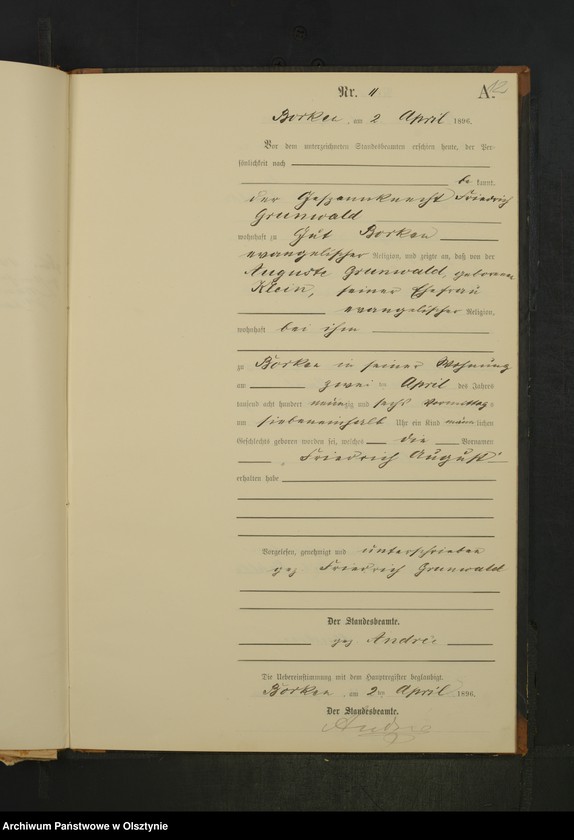 12
Nr. 11 A.
Borken, am 2 April 1896.
Vor dem unterzeichneten Standesbeamten erschien heute, der Per-
sönlichkeit nach
be kannt,
der Gespannknecht Friedrich
Grunwald
wohnhaft zu Gut Borken
evangelischer Religion, und zeigte an, daß von der
Auguste Grunwald, geborenen
Klein, seiner Ehefrau
evangelischer Religion,
wohnhaft bei ihm
zu Borken in seiner Wohnung
am zwei ten April des Jahres
tausend acht hundert neunzig und sechs Vormittags
um siebeneinhalb Uhr ein Kind männlichen
Geschlechts geboren worden sei, welches die Vornamen
Friedrich August
erhalten habe
Vorgelesen, genehmigt und unterschrieben
gez Friedrich Grunwald
Der Standesbeamte.
gez Andrée
Die Uebereinstimmung mit dem Hauptregister beglaubigt.
Borken, am 2ten April 1896.
Der Standesbeamte.
Archiwum Państwowe w Olsztynie